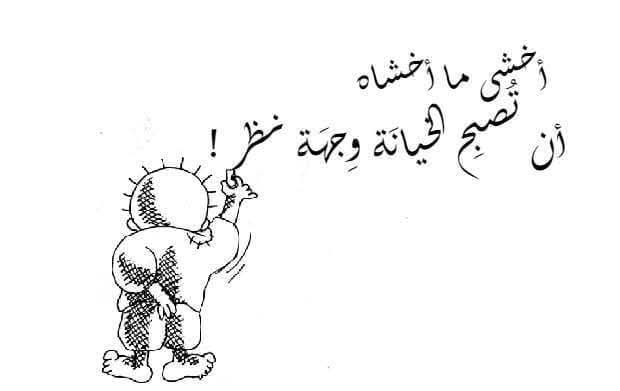 أخشى ما أخشاه
أن تُصبِح الخيانَة وِجهَة نظر !